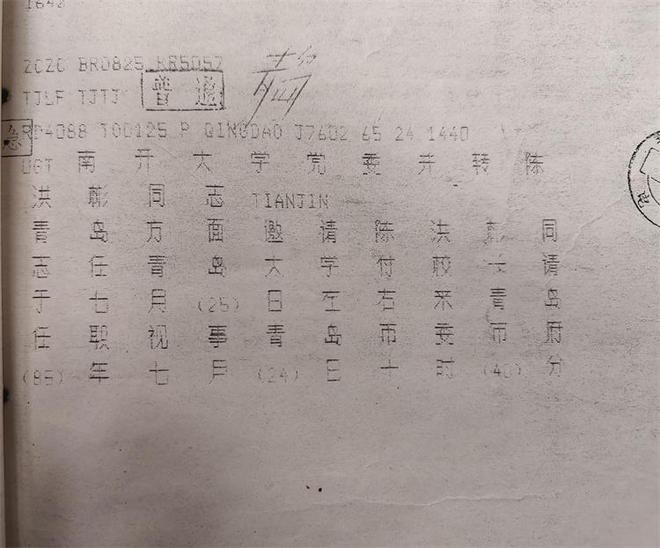 1642
2020 BR0825 RR5057
TJLF TJTJ 普递
急 RP4088 TOD125 P QINGDAO J7602 65 24 1440
UGT 南开大学党委并转陈
洪 同志 TIANJIN
青岛方面邀请陈洪 同
志任青岛大学付校长请
于七月(25)日左右来青岛
任职视事青岛市委市府
(85)年七月(24)日十时(40)分